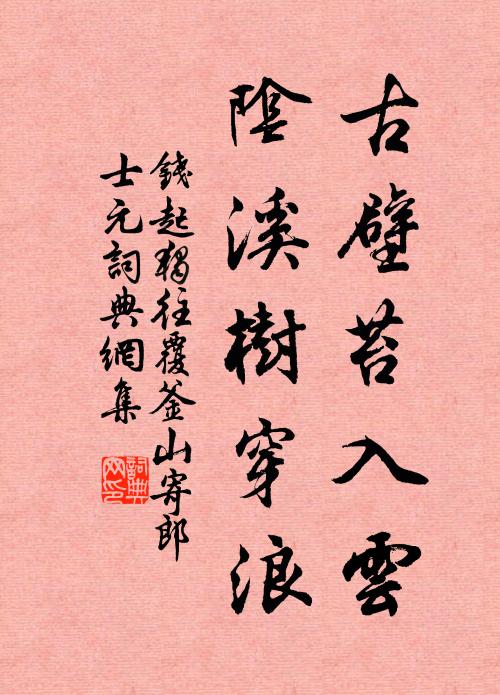 古壁苔入雲
陰溪樹穿浪
錢起獨往覆釜山寄郎
士元詞典網集
詞典网印